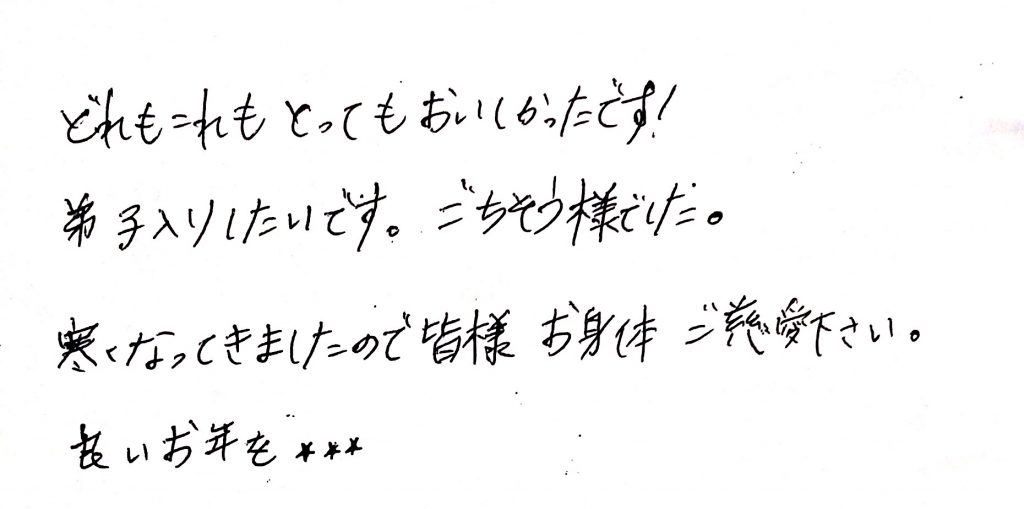 どれもこれも とっても おいしかったです!
弟子入りしたいです。ごちそう様でした。
寒くなってきましたので皆様 お身体 ご慈愛下さい。
良いお年を ***